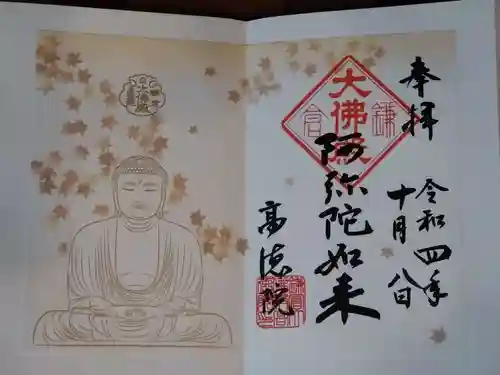 奉拝
令和四年
十月八日
大佛殿
鎌倉
阿弥陀如来
高徳院